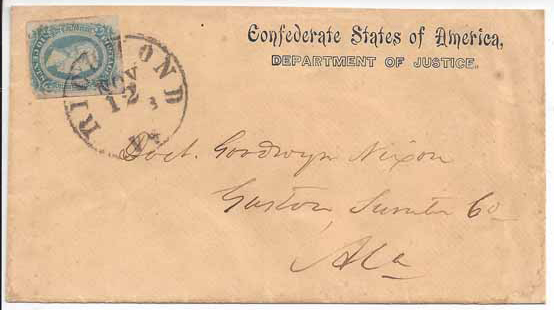 Confederate States of America,
DEPARTMENT OF JUSTICE.
RICHMOND
NOV
12
3
Va
Doct. Goodwyn Nixon
Gaston, Sumter Co
Ala